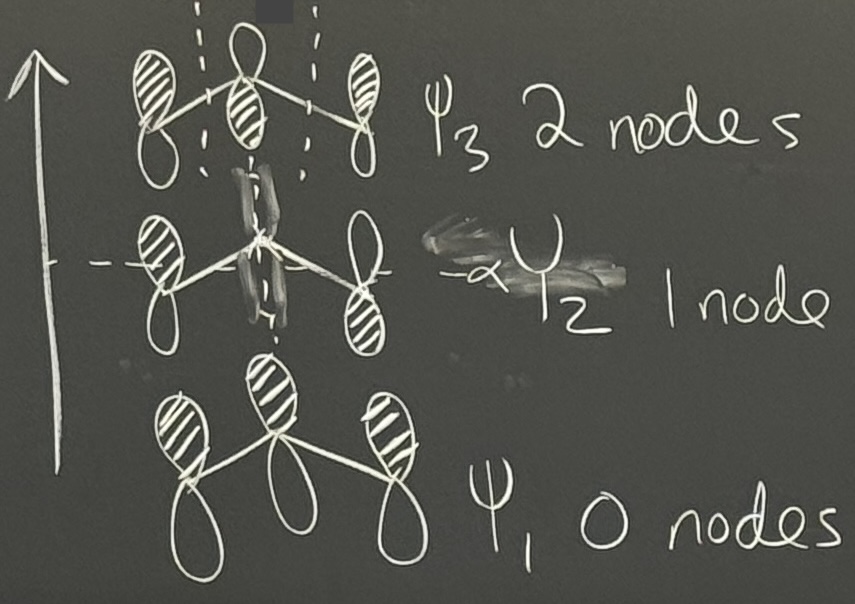 Ψ3 2 nodes
-α Ψ2 1 node
Ψ1 0 nodes